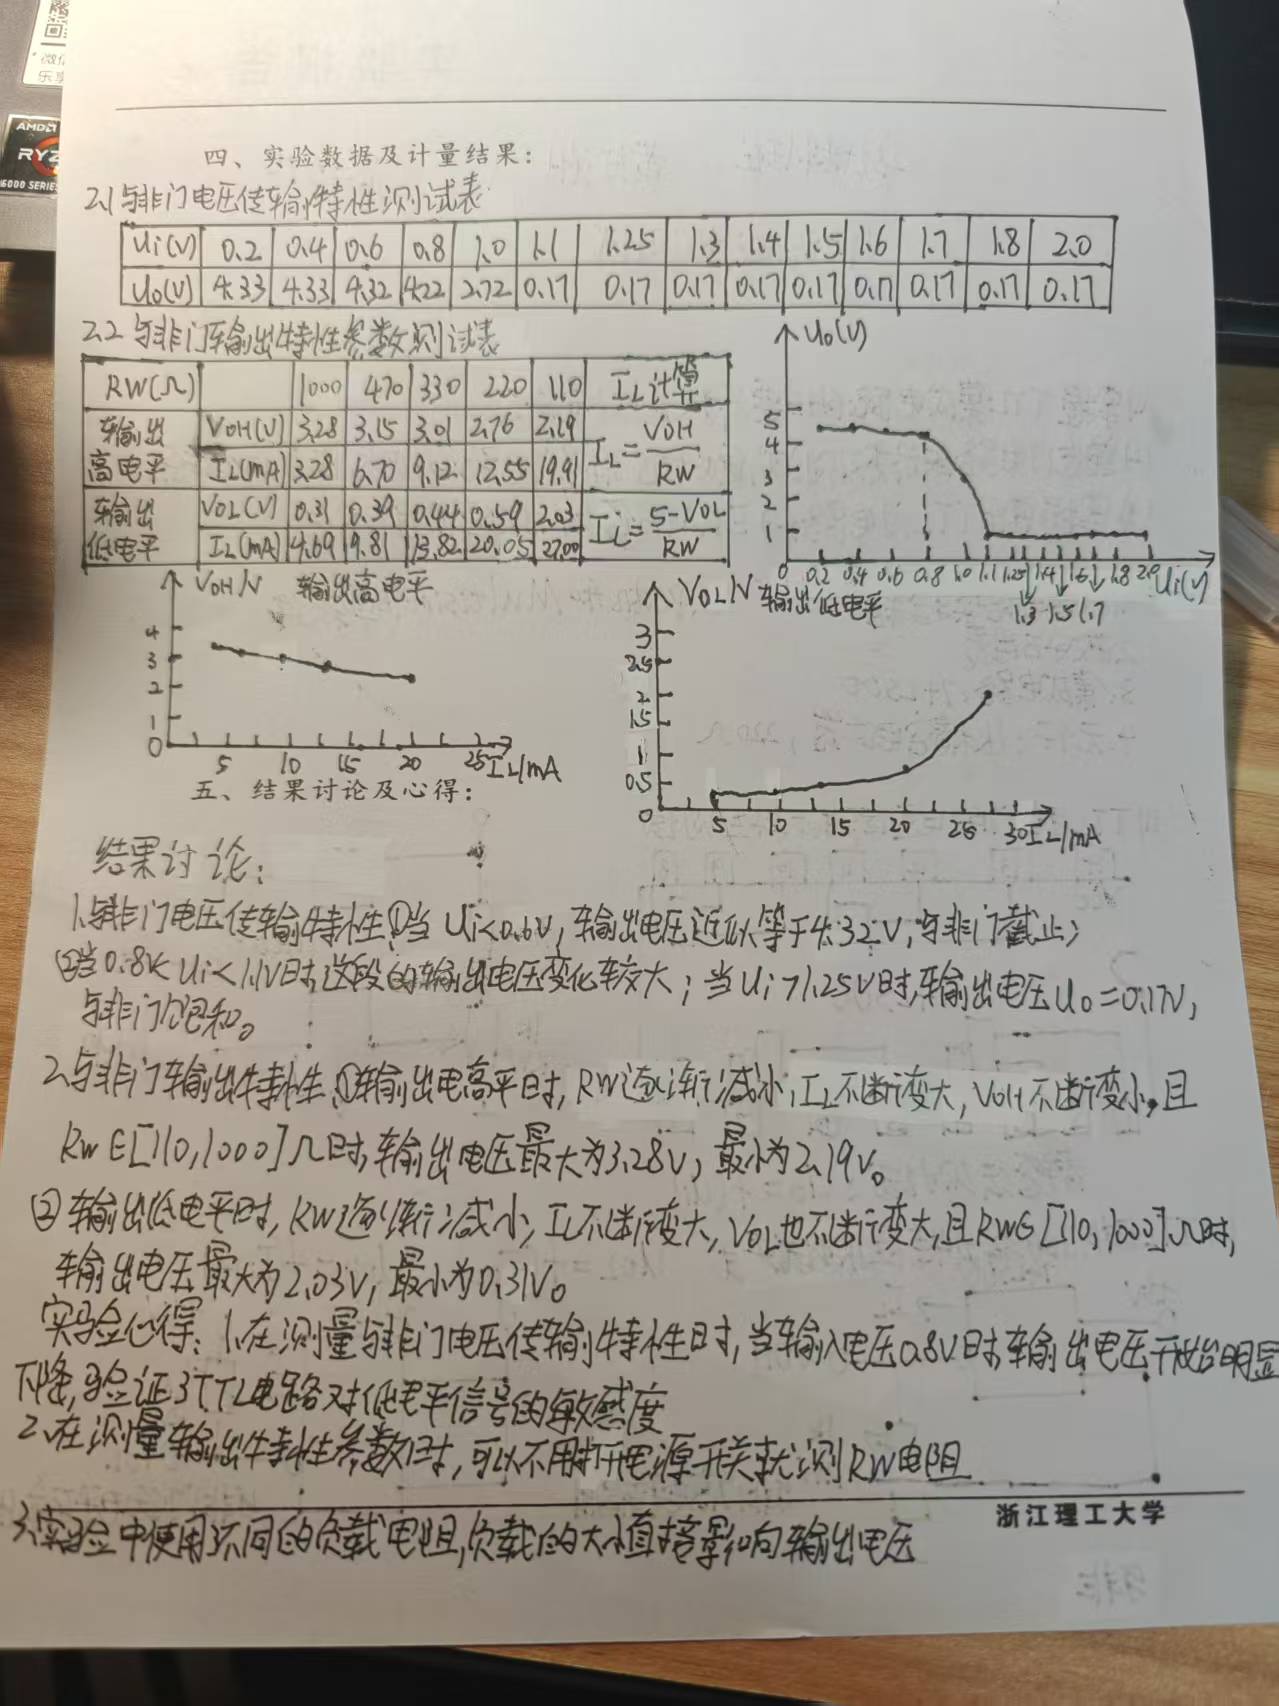 微信
乐享
AMD
RYZ
6000 SERIES
四、实验数据及计量结果：
2.1与非门电压传输特性测试表
Ui(V) 0.2 0.4 0.6 0.8 1.0 1.1 1.25 1.3 1.4 1.5 1.6 1.7 1.8 2.0
Uo(V) 4.33 4.33 4.32 4.22 2.72 0.17 0.17 0.17 0.17 0.17 0.17 0.17 0.17 0.17
2.2 与非门输出特性参数测试表
RW(Ω) 1000 470 330 220 110 IL计算
输出高电平 VOH(V) 3.28 3.15 3.01 2.76 2.19 IL=VOH/RW
IL(mA) 3.28 6.70 9.12 12.55 19.91
输出低电平 VOL(V) 0.31 0.39 0.44 0.59 2.03 IL=5-VOL/RW
IL(mA) 4.69 9.81 13.82 20.05 27.00
Uo(V)
5
4
3
2
1
0 0.2 0.4 0.6 0.8 1.0 1.1 1.25 1.4 1.6 1.8 2.0 Ui(V)
1.3 1.5 1.7
VOH/V 输出高电平
4
3
2
1
0 5 10 15 20 25 IL/mA
VOL/V 输出低电平
3
2.5
2
1.5
1
0.5
0 5 10 15 20 25 30 IL/mA
五、结果讨论及心得：
结果讨论：
1.与非门电压传输特性①当Ui<0.6V，输出电压近似等于4.32V，与非门截止；
②当0.8V<Ui<1.1V时，这段的输出电压变化较大；当Ui>1.25V时，输出电压Uo=0.17V，
与非门饱和。
2.与非门输出特性①输出电高平时，RW逐渐减小，IL不断变大，VOH不断变小，且
RW∈[110,1000]Ω时，输出电压最大为3.28V，最小为2.19V。
②输出低电平时，RW逐渐减小，IL不断变大，VOL也不断变大，且RW∈[110,1000]Ω时，
输出电压最大为2.03V，最小为0.31V。
实验心得：1.在测量与非门电压传输特性时，当输入电压0.8V时，输出电压开始明显
下降，验证了TTL电路对低电平信号的敏感度
2.在测量输出特性参数时，可以不用打开电源开关就测RW电阻
浙江理工大学
3.实验中使用不同的负载电阻，负载的大小直接影响输出电压